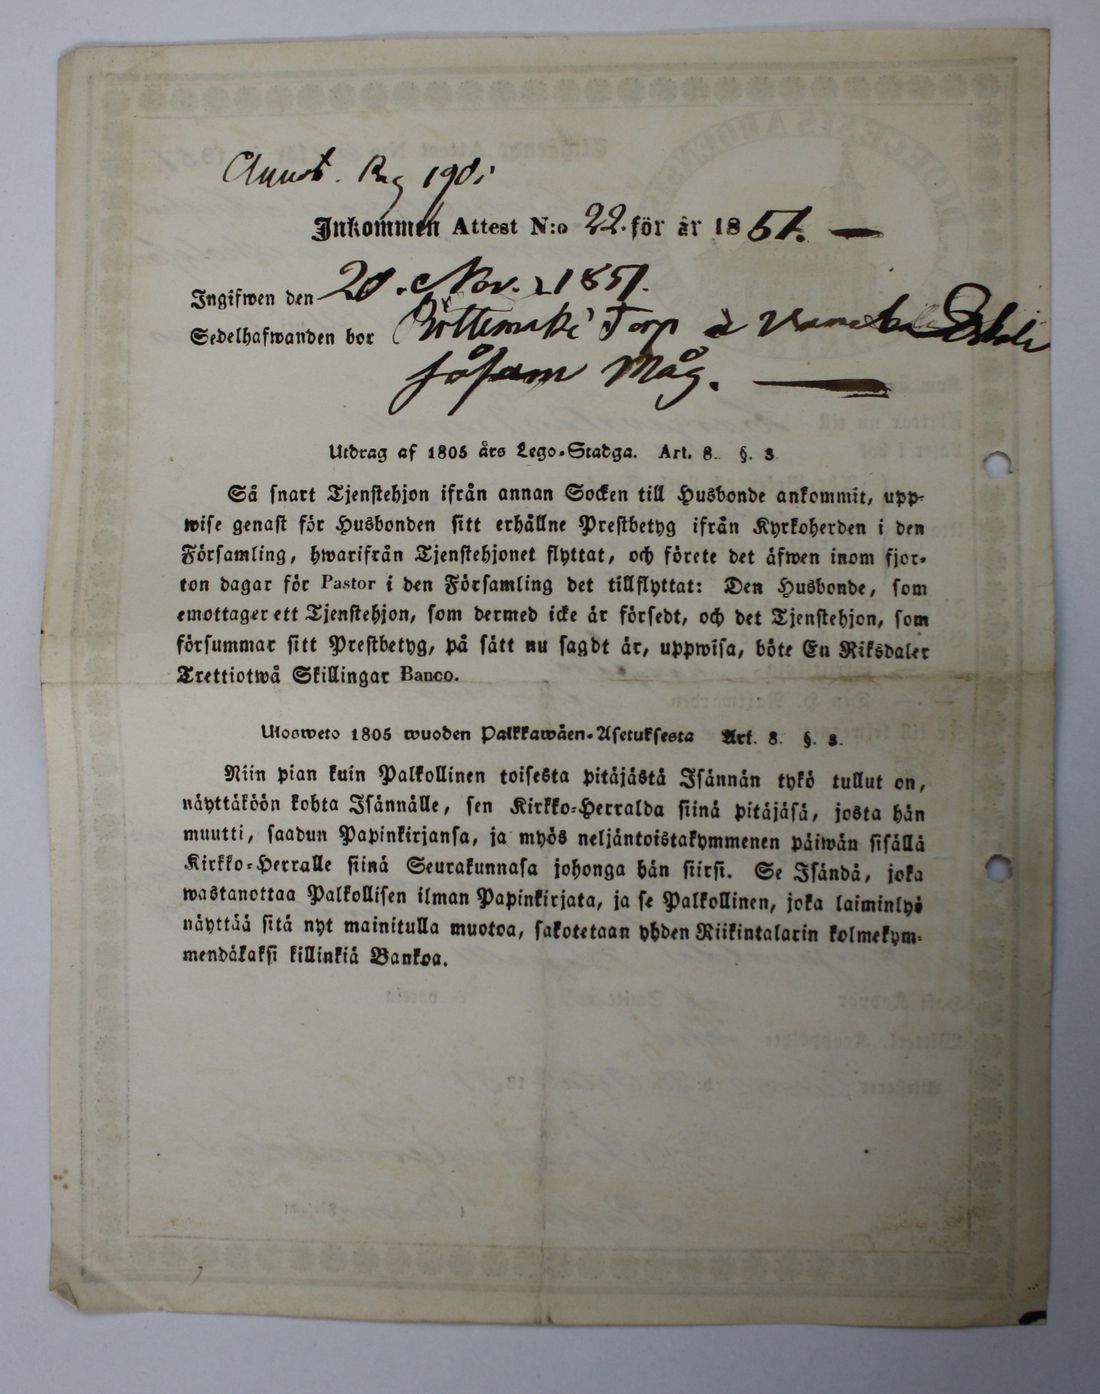 Annot. Pag 198.
Inkommen Attest N:o 22. för år 1851. —
Ingifwen den 20. Nov. 1851.
Sedelhafwanden bor Torp
såsom Måg. —
Utdrag af 1805 års Lego-Stadga. Art. 8. §. 3
Så snart Tjenstehjon ifrån annan Socken till Husbonde ankommit, upp-
wise genast för Husbonden sitt erhållne Prestbetyg ifrån Kyrkoherden i den
Församling, hwarifrån Tjenstehjonet flyttat, och förete det äfwen inom fjor-
ton dagar för Pastor i den Församling det tillflyttat: Den Husbonde, som
emottager ett Tjenstehjon, som dermed icke är försedt, och det Tjenstehjon, som
försummar sitt Prestbetyg, på sätt nu sagdt är, uppwisa, böte En Riksdaler
Trettiotwå Skillingar Banco.
Ulosweto 1805 wuoden Palkkawäen-Asetuksesta Art. 8. §. 3.
Niin pian kuin Palkollinen toisesta pitäjästä Isännän tykö tullut on,
näyttäköön kohta Isännälle, sen Kirkko-Herralda siinä pitäjäsä, josta hän
muutti, saadun Papinkirjansa, ja myös neljäntoistakymmenen päiwän sisällä
Kirkko-Herralle siinä Seurakunnasa johonga hän siirsi. Se Isändä, joka
wastanottaa Palkollisen ilman Papinkirjata, ja se Palkollinen, joka laiminlyö
näyttää sitä nyt mainitulla muotoa, sakotetaan yhden Riikintalarin kolmekym-
mendäkaksi killinkiä Bankoa.